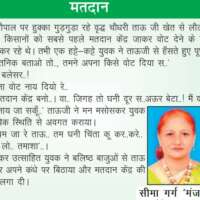 मतदान
पाल पर हुक्का गुड़गुड़ा रहे वृद्ध चौधरी ताऊ जी खेत से लौट
किसानों को सबसे पहले मतदान केंद्र जाकर वोट देने के
कर रहे थे। तभी एक हट्टे-कट्टे युवक ने ताऊजी से हँसते हुए पू
तनिक बताओ तो.. तमने अपना किसे वोट दिया स.'
बलेसर..!
ा वोट नाय दियो रे..
मतदान केंद्र बनो.. वा. जिगह तो घनी दूर स.अऊर बेटा..! मैं
नाय जा सकूँ.' ताऊजी ने मन मसोसकर युवक
क स्थिति से अवगत कराया।
म जा रे ताऊ.. तम घनी चिंता कू कर.करे..
लो. तमाशा'..!
कर उत्साहित युवक ने बलिष्ठ बाजुओं से ताऊ
कर अपने कंधे पर बिठाया और मतदान केंद्र की
लगा दी।
सीमा गर्ग 'मंज